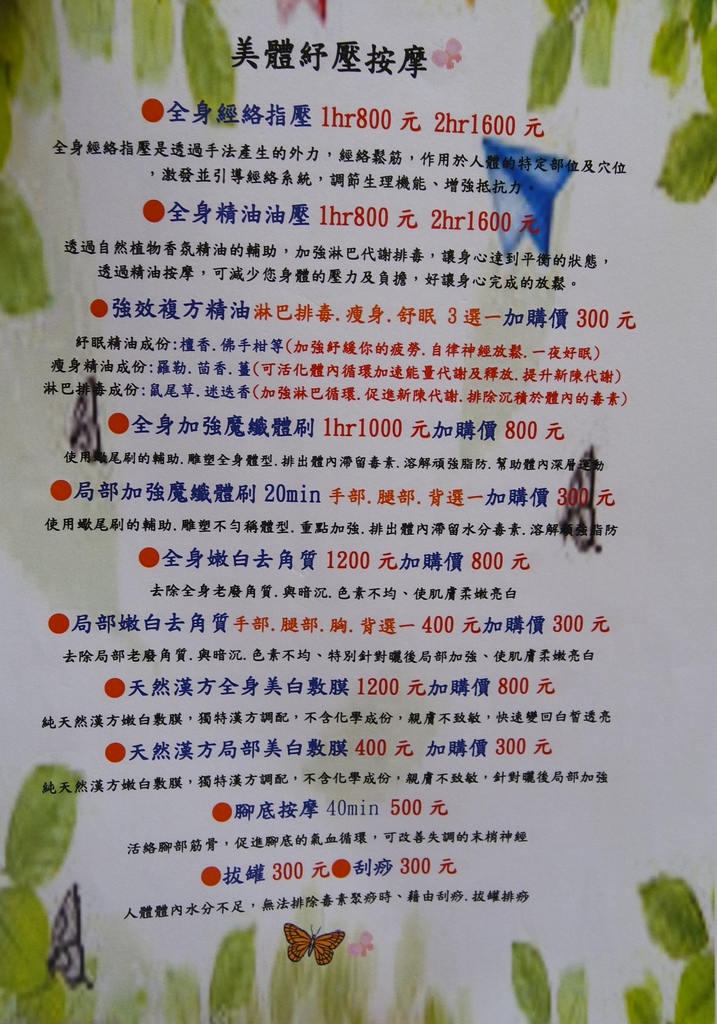 美體紓壓按摩
●全身經絡指壓 1hr800 元 2hr1600 元
全身經絡指壓是透過手法產生的外力，經絡鬆筋，作用於人體的特定部位及穴位
，激發並引導經絡系統，調節生理機能、增強抵抗力。
●全身精油油壓 1hr800 元 2hr1600 元
透過自然植物香氛精油的輔助，加強淋巴代謝排毒，讓身心達到平衡的狀態，
透過精油按摩，可減少您身體的壓力及負擔，好讓身心完成的放鬆。
●強效複方精油淋巴排毒.瘦身.舒眠 3 選一加購價 300 元
紓眠精油成份:檀香.佛手柑等(加強紓緩你的疲勞.自律神經放鬆.一夜好眠)
瘦身精油成份:羅勒.茴香.薑(可活化體內循環加速能量代謝及釋放.提升新陳代謝)
淋巴排毒成份:鼠尾草.迷迭香(加強淋巴循環.促進新陳代謝.排除沉積於體內的毒素)
●全身加強魔纖體刷 1hr1000 元加購價 800 元
使用蠍尾刷的輔助.雕塑全身體型.排出體內滯留毒素.溶解頑強脂肪.幫助體內深層運動
●局部加強魔纖體刷 20min 手部.腿部.背選一加購價 300 元
使用蠍尾刷的輔助.雕塑不勻稱體型.重點加強.排出體內滯留水分毒素.溶解頑強脂肪
●全身嫩白去角質 1200 元加購價 800 元
去除全身老廢角質.與暗沉.色素不均、使肌膚柔嫩亮白
●局部嫩白去角質手部.腿部.胸.背選一 400 元加購價 300 元
去除局部老廢角質.與暗沉.色素不均、特別針對曬後局部加強、使肌膚柔嫩亮白
●天然漢方全身美白敷膜 1200 元加購價 800 元
純天然漢方嫩白敷膜，獨特漢方調配，不含化學成份，親膚不致敏，快速變回白皙透亮
●天然漢方局部美白敷膜 400 元 加購價 300 元
純天然漢方嫩白敷膜，獨特漢方調配，不含化學成份，親膚不致敏，針對曬後局部加強
●腳底按摩 40min 500 元
活絡腳部筋骨，促進腳底的氣血循環，可改善失調的末梢神經
●拔罐 300 元●刮痧 300 元
人體體內水分不足，無法排除毒素聚痧時、藉由刮痧.拔罐排痧